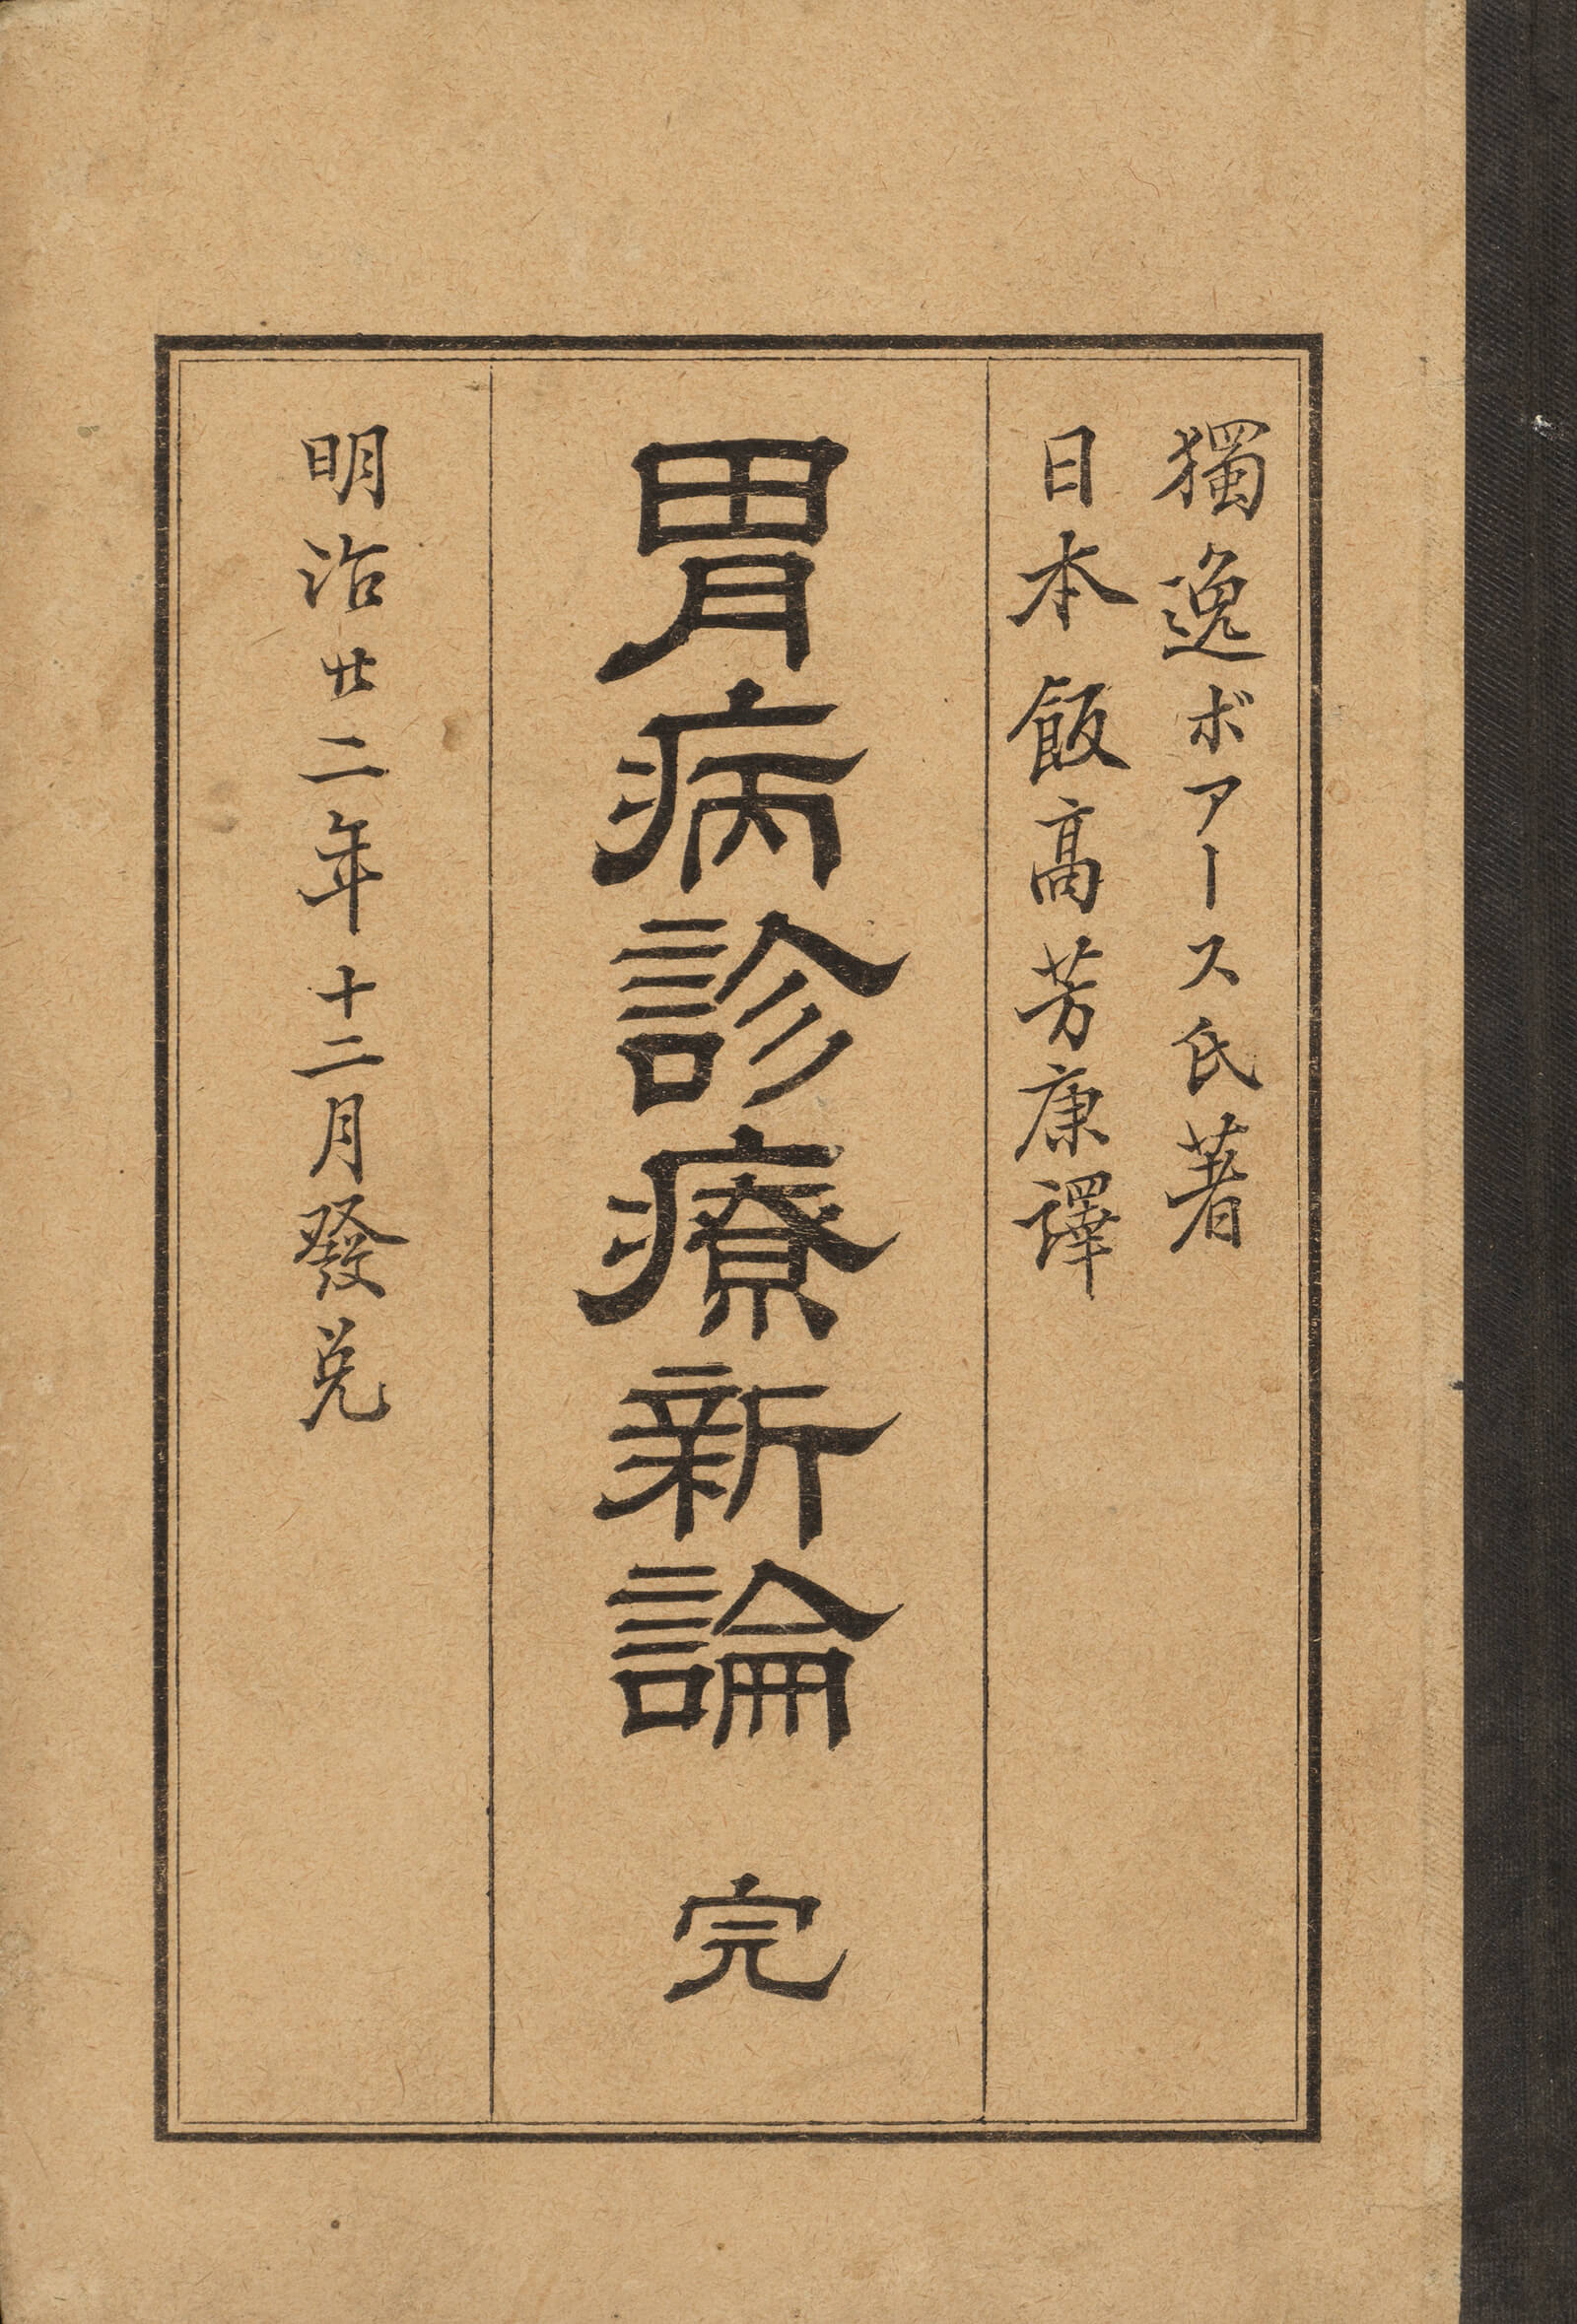 獨逸ボアース氏著
日本飯高芳康譯
胃病診療新論 完
明治廿二年十二月發兌